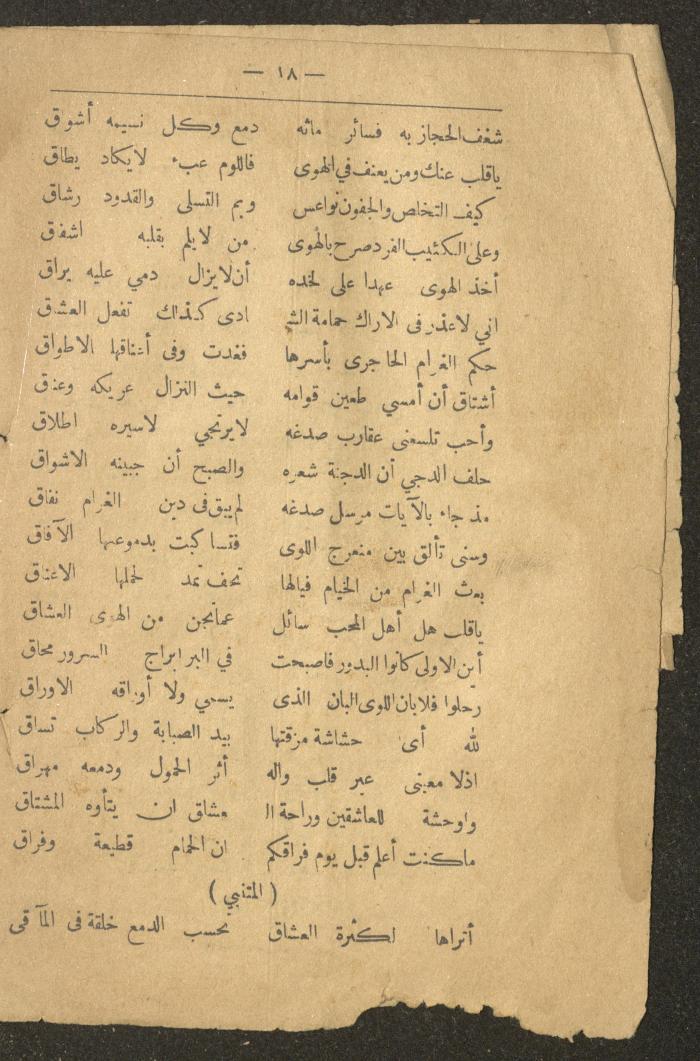 — ١٨ —
شغف الحجاز به فسائر مائه دمع وكل نسيمه أشواق
ياقلب عنك ومن يعنف في الهوى فاللوم عبء لايكاد يطاق
كيف التخلص والجفون نواعس وبم التسلى والقدود رشاق
وعلى الكثيب الفرد صرح بالهوى من لايلم بقلبه اشفاق
أخذ الهوى عهدا على لخده أن لايزال دمي عليه يراق
اني لاعذر فى الاراك حمامة الش ادى كذاك تفعل العشاق
حكم الغرام الحاجرى بأسرها فغدت وفى أعناقها الاطواق
أشتاق أن أمسي طعين قوامه حيث النزال عريكه وعناق
وأحب تلسعنى عقارب صدغه لايرتجي لاسيره اطلاق
حلف الدجي أن الدجنة شعره والصبح أن جبينه الاشواق
مذ جاء بالآيات مرسل صدغه لم يبق فى دين الغرام نفاق
وسنى تألق بين منعرج اللوى فتسا كبت بدموعها الآفاق
بعث الغرام من الخيام فيالها تحف تمد لحملها الاعناق
ياقلب هل أهل المحب سائل عما تجن من الهوى العشاق
أين الاولى كانوا البدور فاصبحت في البر ابراج السرور محاق
رحلوا فلا بان اللوى البان الذى يسمي ولا أوراقه الاوراق
لله أى حشاشة مزقتها بيد الصبابة والركاب تساق
اذلا معينى غير قلب واله أثر الحمول ودمعه مهراق
واوحشة للعاشقين وراحة ال عشاق ان يتأوه المشتاق
ماكنت أعلم قبل يوم فراقكم ان الحمام قطيعة وفراق
( المتنبي )
أتراها لكثرة العشاق تحسب الدمع خلقة فى المآ قى